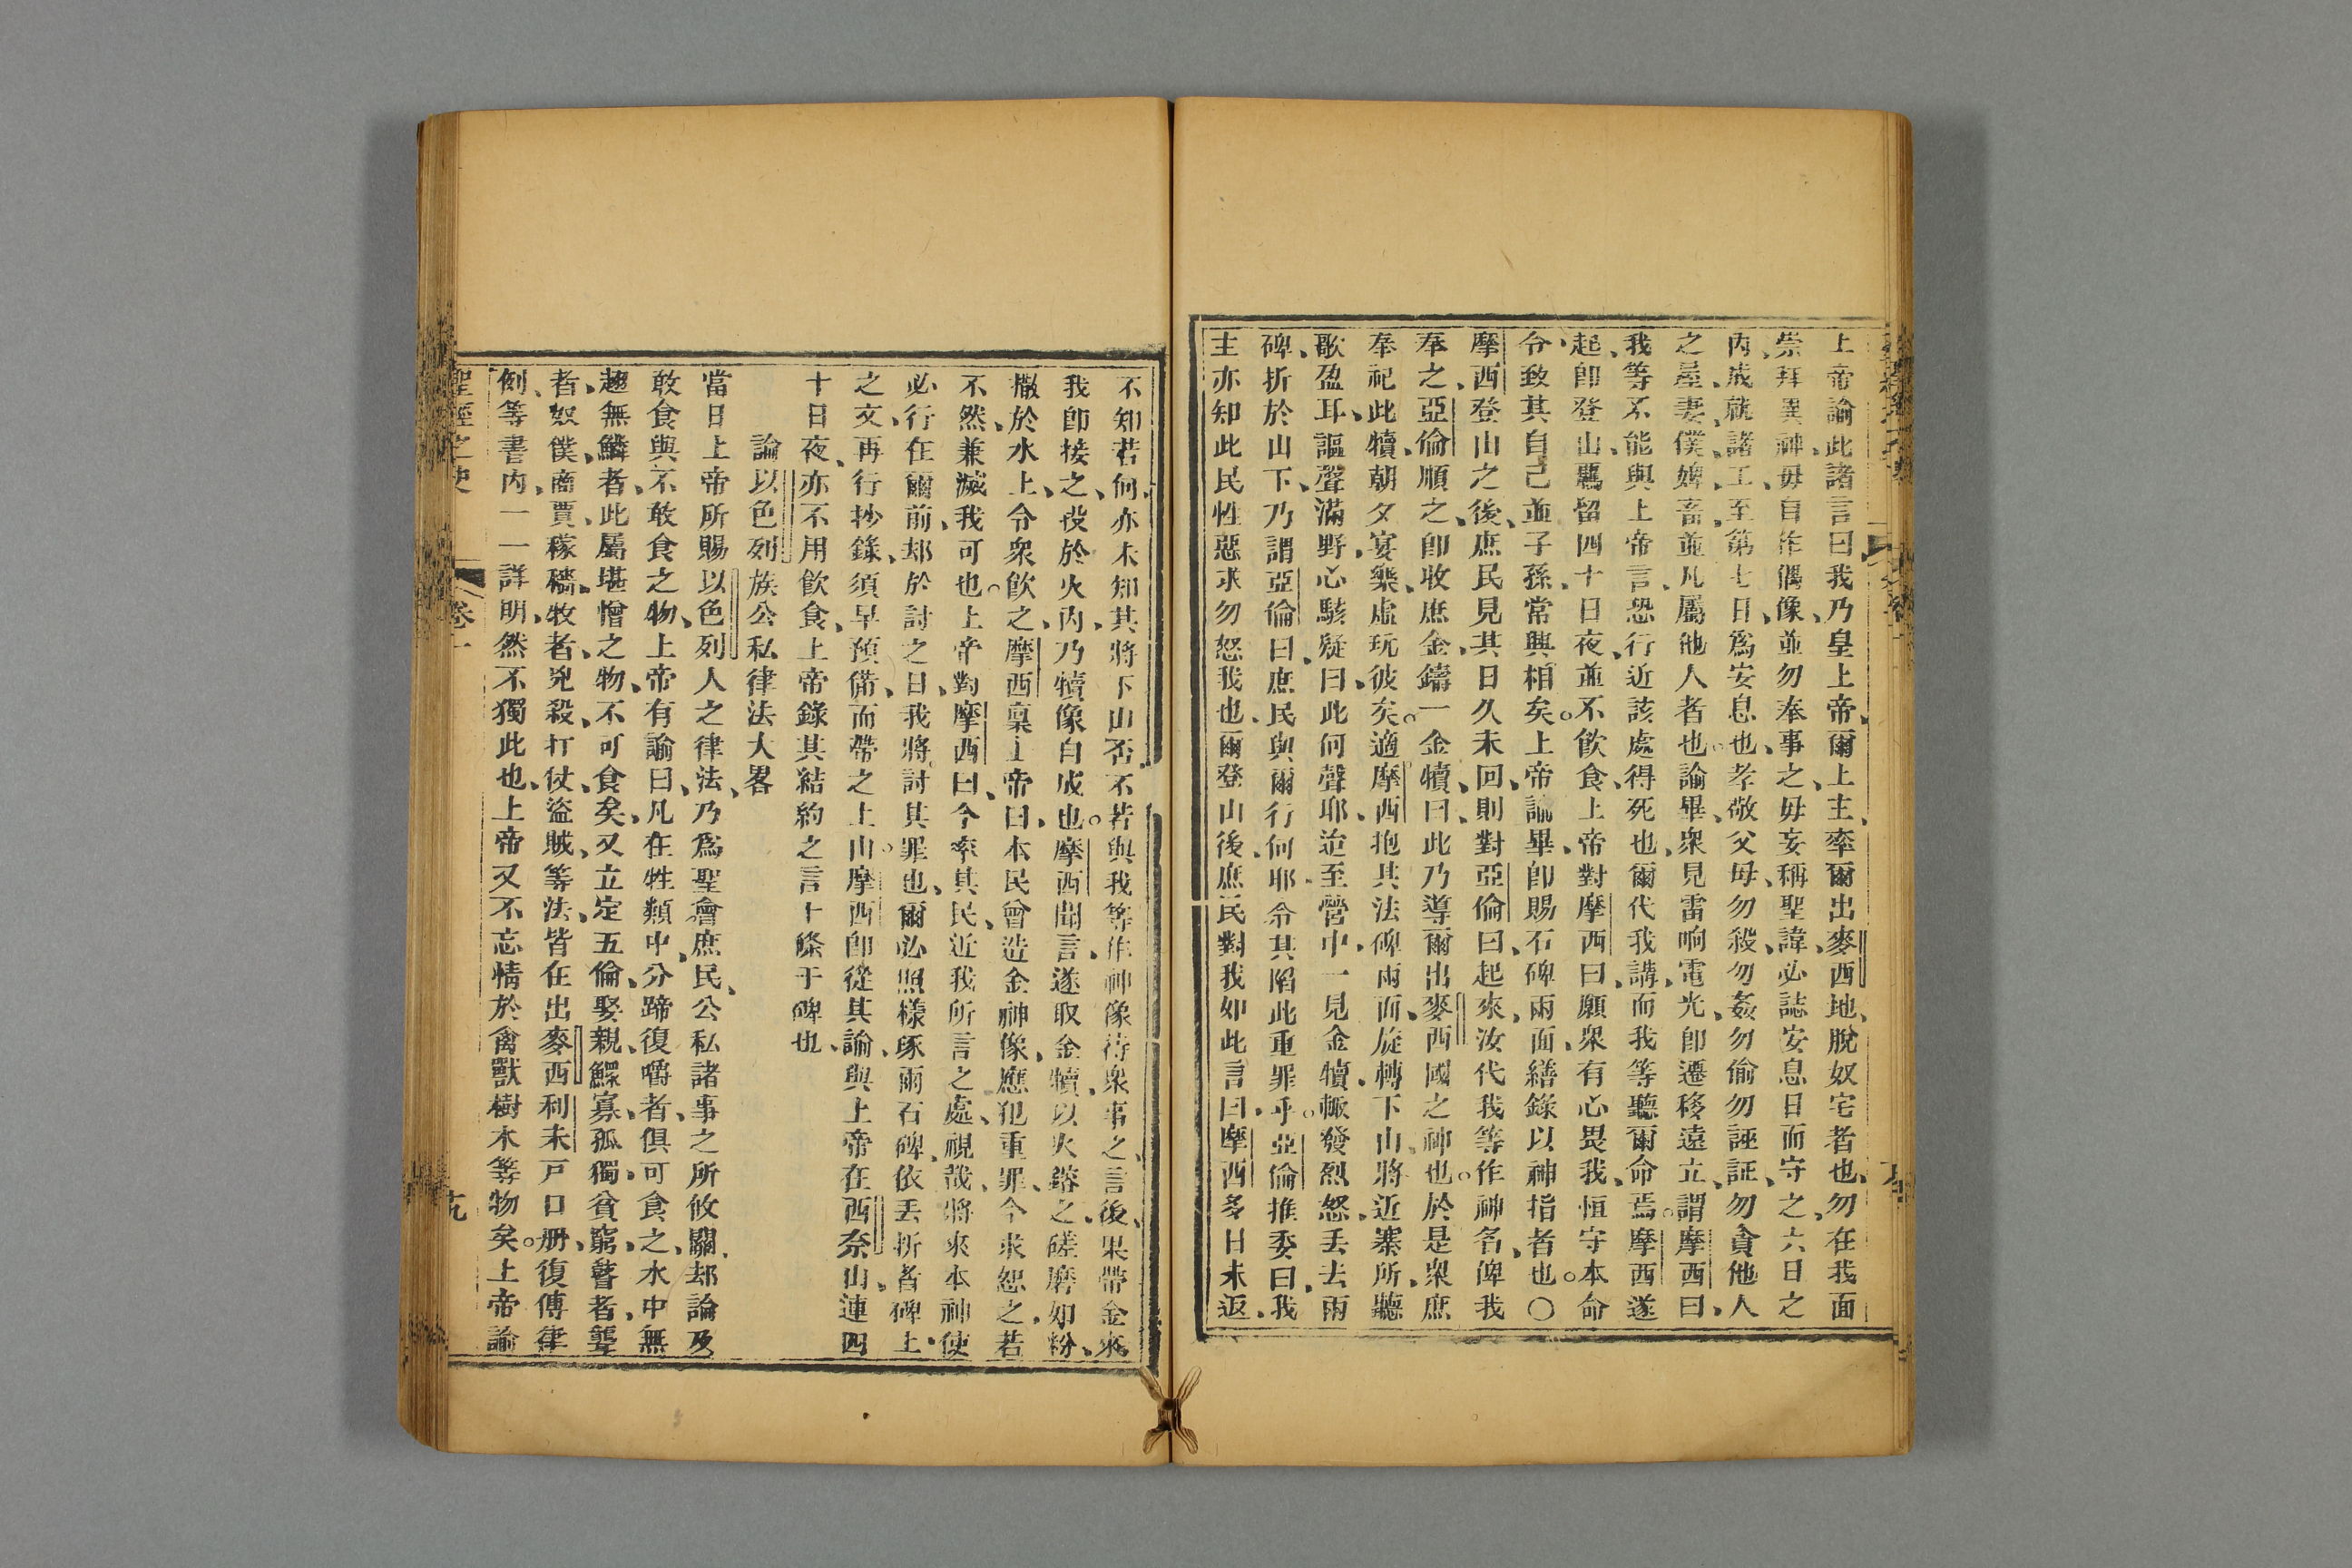 上帝論此諸言曰我乃皇上帝、爾上主、率爾出麥西地、脫奴宅者也、勿在我面
崇拜異神、毋自作偶像、並勿奉事之、毋妄稱聖諱、必誌安息日而守之、六日之
內、成就諸工、至第七日、爲安息也、孝敬父母、勿殺、勿姦、勿偷、勿誣証、勿貪他人
之屋、妻、僕、婢、畜、並凡屬他人者也。論畢、衆見雷响電光、卽遷移遠立、謂摩西曰、
我等不能與上帝言、恐行近該處得死也、爾代我講、而我等聽爾命焉。摩西遂
起、卽登山、駡留四十日夜、並不飲食、上帝對摩西曰、願衆有心畏我、恒守本命
令、致其自己並子孫、常興相矣。上帝諭畢、卽賜石碑兩面、繕錄以神指者也。○
摩西登山之後、庶民見其日久未回、則對亞倫曰、起來、汝代我等作神名、俾我
奉之、亞倫順之、卽收庶金、鑄一金犢、曰、此乃導爾出麥西國之神也。於是衆庶
奉祀此犢、朝夕宴樂、虛玩彼矣。適摩西抱其法碑兩面、旋轉下山、將近寨所、聽
歌盈耳、謳聲滿野、心駭疑曰、此何聲耶、迨至營中、一見金犢、輙發烈怒、丢去兩
碑、折於山下、乃謂亞倫曰、庶民與爾行何耶、令其陷此重罪乎。亞倫推委曰、我
主亦知此民性惡、求勿怒我也、爾登山後、庶民對我如此言曰、摩西多日未返、
不知若何、亦未知其將下山否、不若與我等作神像、待衆事之、言後、果帶金來、
我卽接之、投於火內、乃犢像自成也。摩西聞言、遂取金犢、以火鎔之、磋磨如粉、
撒於水上、令衆飲之、摩西稟上帝曰、本民曾造金神像、應犯重罪、今求恕之、若
不然、兼滅我可也。上帝對摩西曰、今率其民、近我所言之處、視哉、將來本神使
必行在爾前、却於討之日、我將討其罪也、爾必照樣琢兩石碑、依丢折者碑上
之文、再行抄錄、須早預備、而帶之上山。摩西卽從其諭、與上帝在西奈山、連四
十日夜、亦不用飲食、上帝錄其結約之言十條于碑也、
論以色列族公私律法大畧
當日上帝所賜以色列人之律法、乃爲聖會庶民、公私諸事之所攸關、却論及
敢食與不敢食之物、上帝有諭曰、凡在牲類中、分蹄復嚼者、俱可食之、水中無
翅無鱗者、此屬堪憎之物、不可食矣、又立定五倫、娶親、鰥寡、孤獨、貧窮、瞽者、聾
者、奴僕、商賈、稼穡、牧者、兇殺、打仗、盜賊、等法、皆在出麥西利未戶口册、復傳律
例、等書內、一一詳明、然不獨此也、上帝又不忘情於禽獸樹木等物矣。上帝諭
聖經之史 卷一